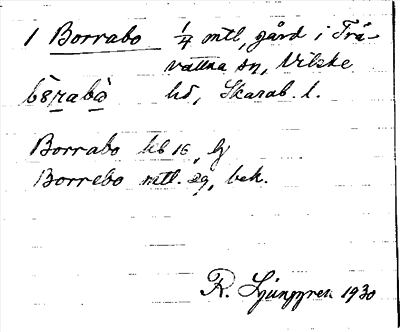 1 Borrabo 1/4 mtl, gård i Trä-
vattna sn, Vilske
bórabò hd, Skarab. l.
Borrabo hb 16, bg
Borrebo mtl. 29, bek.
R. Ljunggren 1930